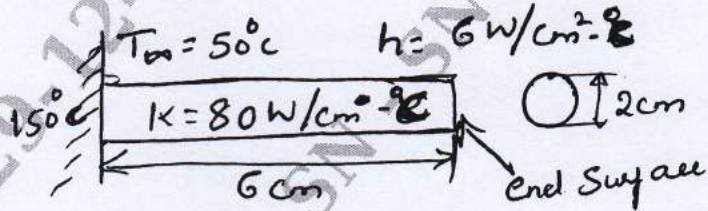 T∞ = 50°C h = 6 W/cm²-°C
150°C K = 80 W/cm-°C 2cm
6 cm end Surface